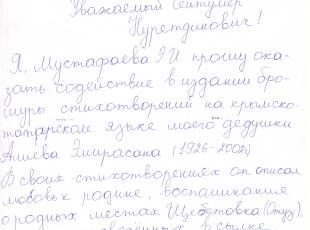 Уважаемый Сейтумер
Нуретдинович!
Я, Мустафаева Э.И прошу ока-
зать содействие в издании бро-
шуры стихотворений на крымско-
татарском языке моего дедушки
Алиева Эмирасана (1926-2002).
В своих стихотворениях он описал
любовь к родине, воспоминания
о родных местах Щебетовка (Отуз),
в ссылке